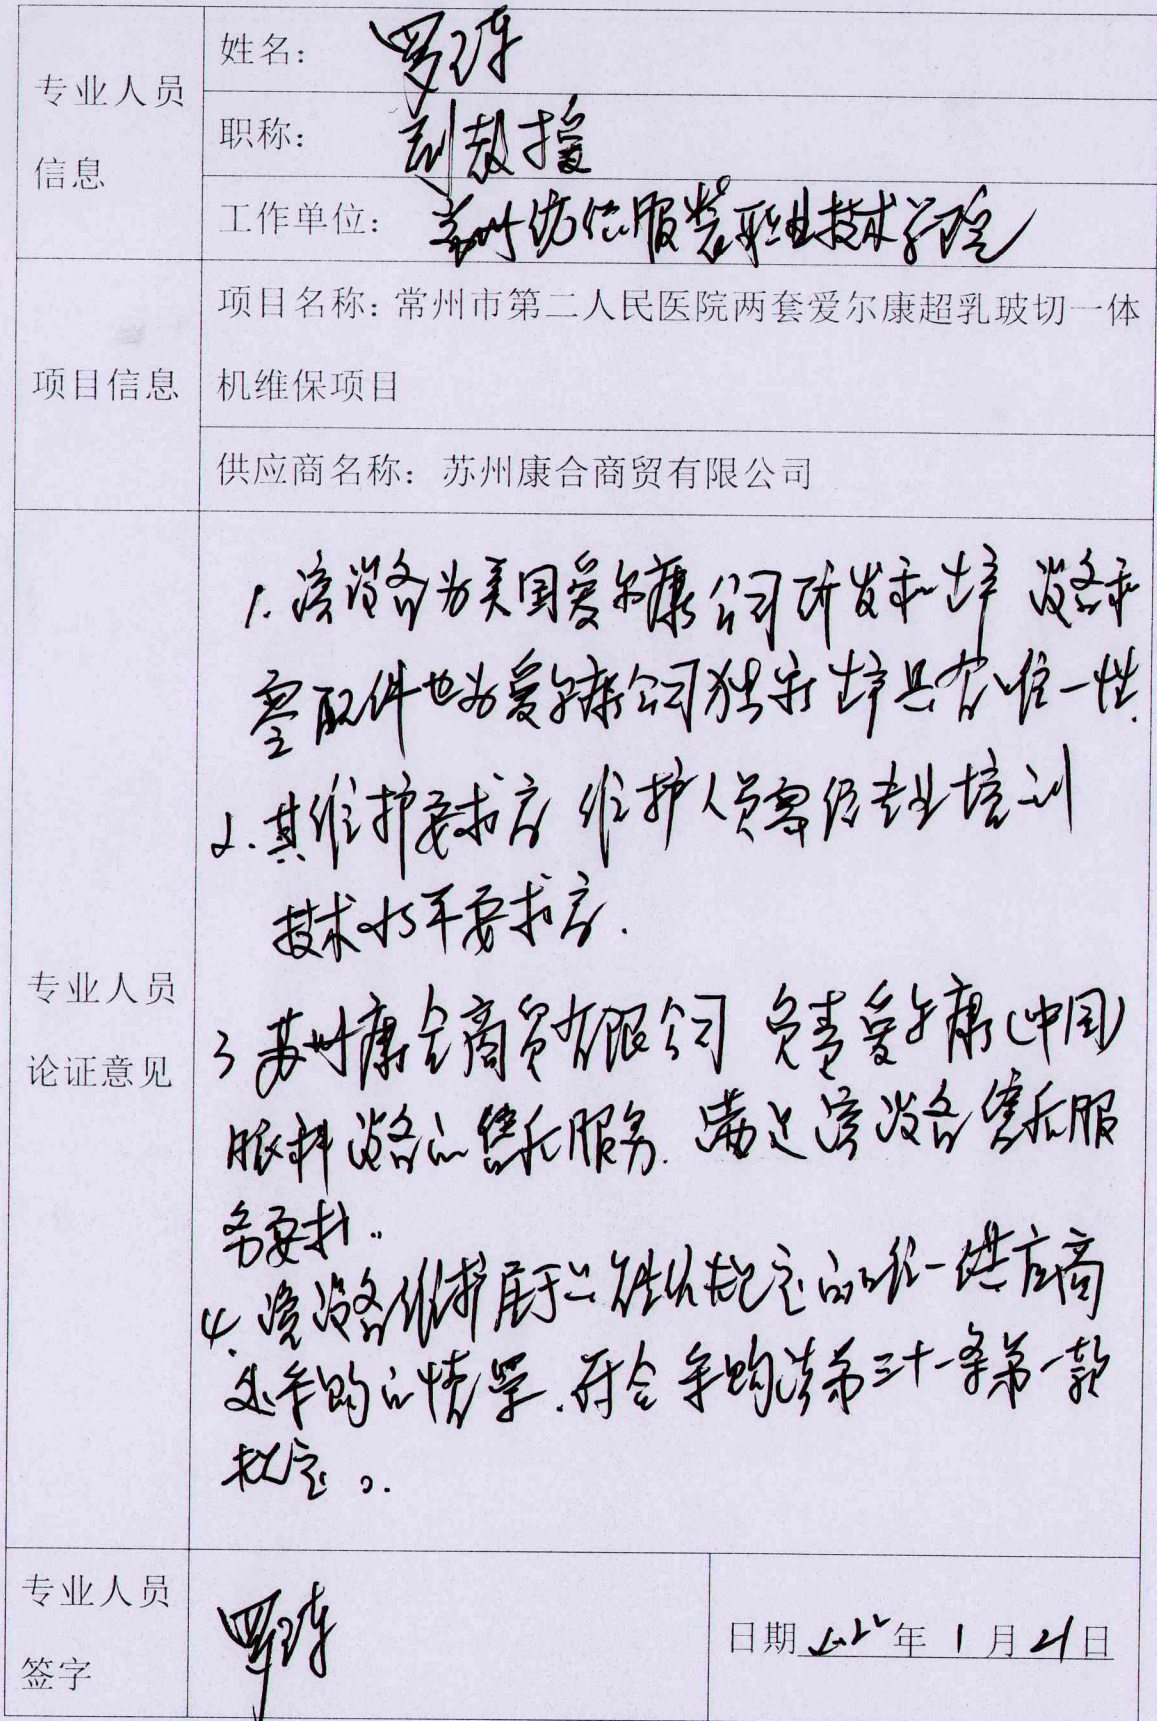 专业人员
信息
姓名：罗
职称：副教授
工作单位：纺织服装职业技术学院
项目信息
项目名称：常州市第二人民医院两套爱尔康超乳玻切一体
机维保项目
供应商名称：苏州康合商贸有限公司
专业人员
论证意见
1. 该设备为美国爱尔康公司研发和生产 设备和
零配件也为爱尔康公司独家生产具有唯一性.
2. 其维护要求高 维护人员需经专业培训
技术水平要求高.
3 苏州康合商贸有限公司 负责爱尔康(中国)
眼科设备的售后服务. 满足该设备售后服
务要求..
4. 该设备维护属于只能从规定的唯一供应商
处采购的情形. 符合采购法第三十一条第一款
规定。.
专业人员
签字
罗
日期 2022年1月21日